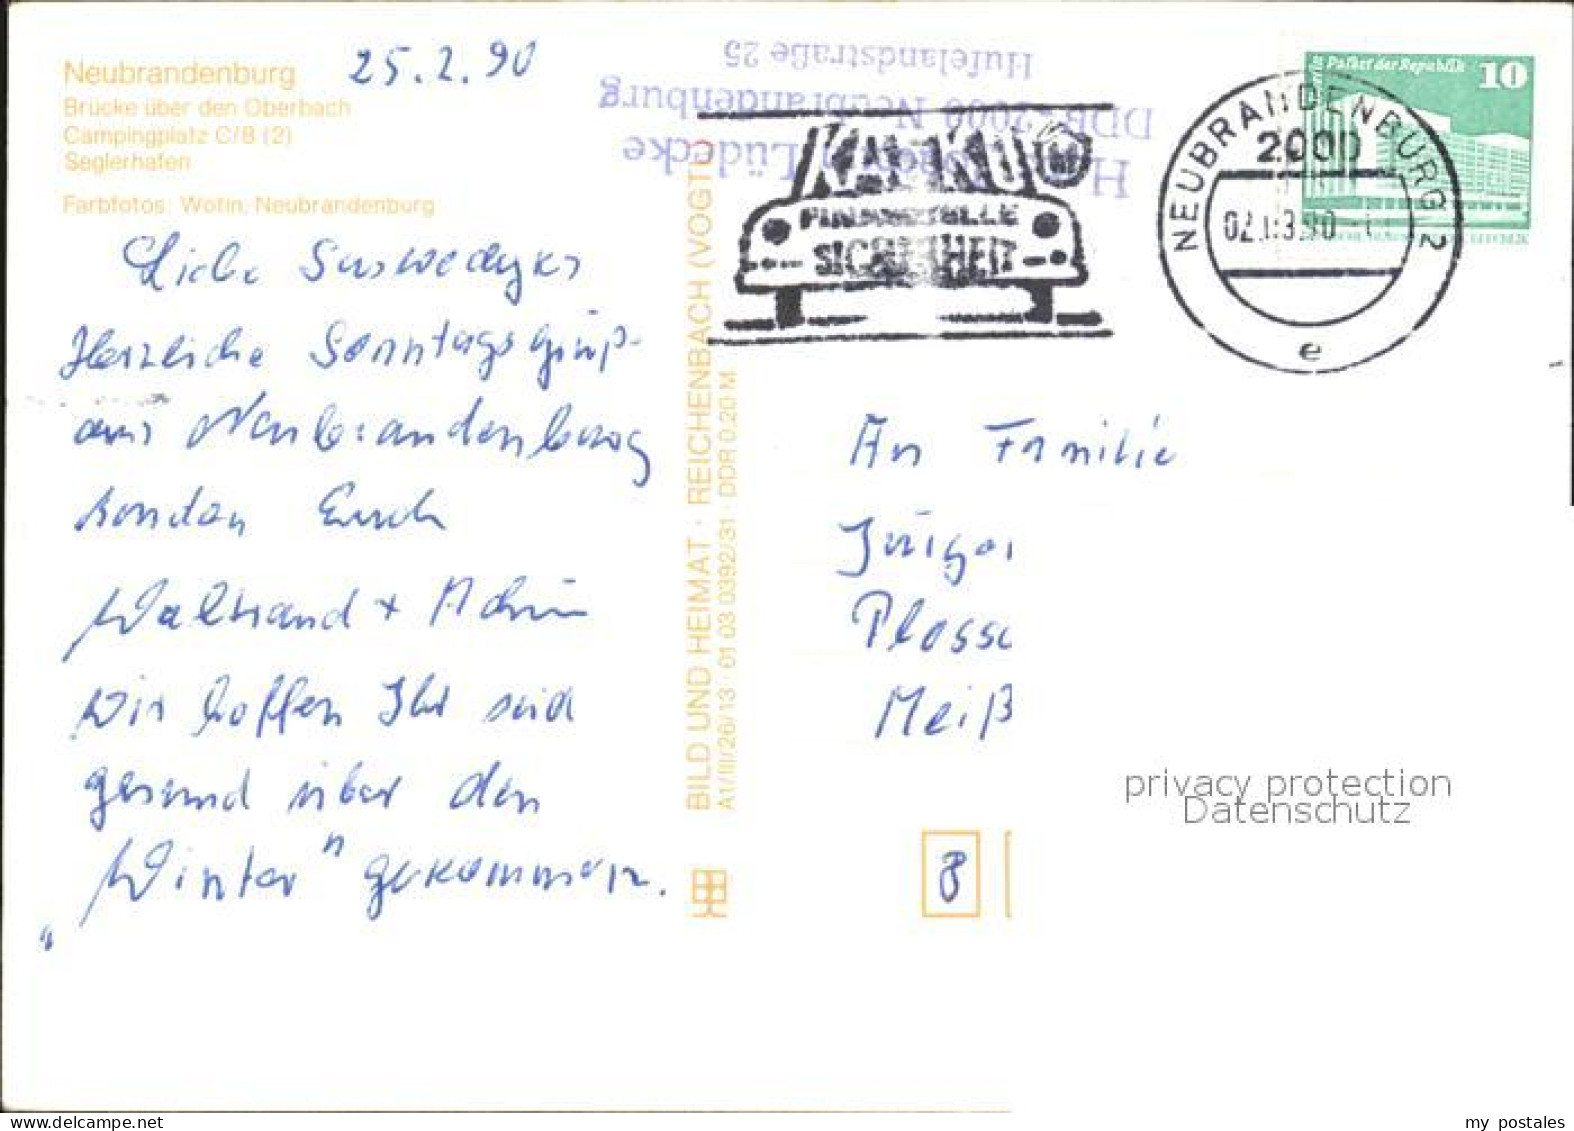 Neubrandenburg
Brücke über den Oberbach
Campingplatz C/8 (2)
Seglerhafen
Farbfotos: Wotin, Neubrandenburg
25.2.90
Liebe
Herzliche Sonntagsgrüße
aus Neubrandenburg
senden Euch
Waltraud + Achim
Wir hoffen Ihr seid
gesund über den
"Winter" gekommen.
BILD UND HEIMAT · REICHENBACH (VOGTL)
A1/III/26/13 · 01 03 0392/31 · DDR 0,20 M
Lüdecke
DDR - 2000 Neubrandenburg
Hufelandstraße 25
KASKO
SICHERHEIT
NEUBRANDENBURG 2
2000
02.03.90
e
Palast der Republik 10
An Familie
Jürgen
Meiß
8
privacy protection
Datenschutz
www.delcampe.net
my_postales